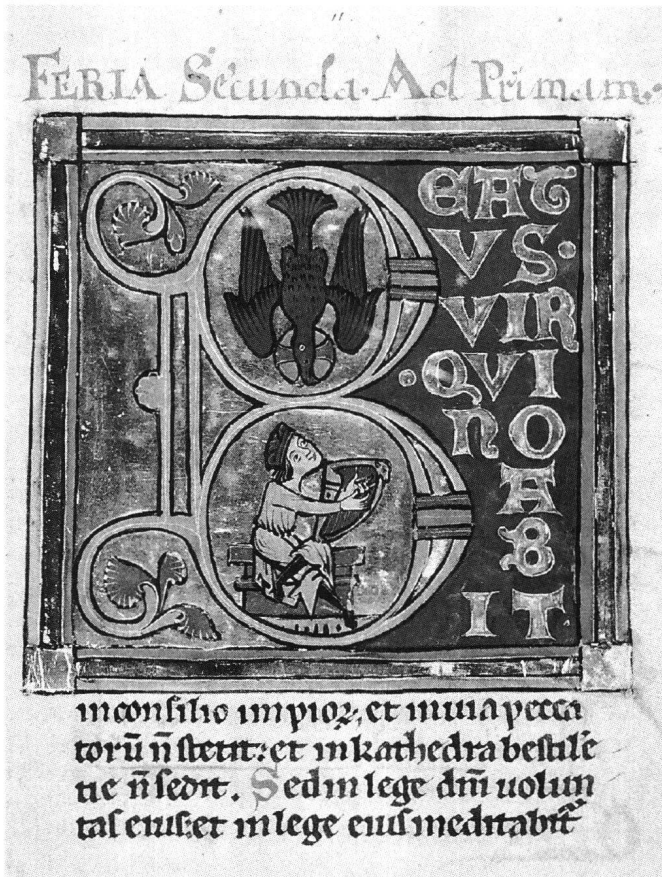 11
FERIA Secunda. Ad Primam.
BEAT
VS.
VIR
QVI
NO
A
B
IT
in consilio impioꝝ, et in uia pecca
torū n̄ stetit: et in kathedra bestilē
tie n̄ sedit. Sed in lege dn̄i uolun
tas eius: et in lege eius meditabit᷑